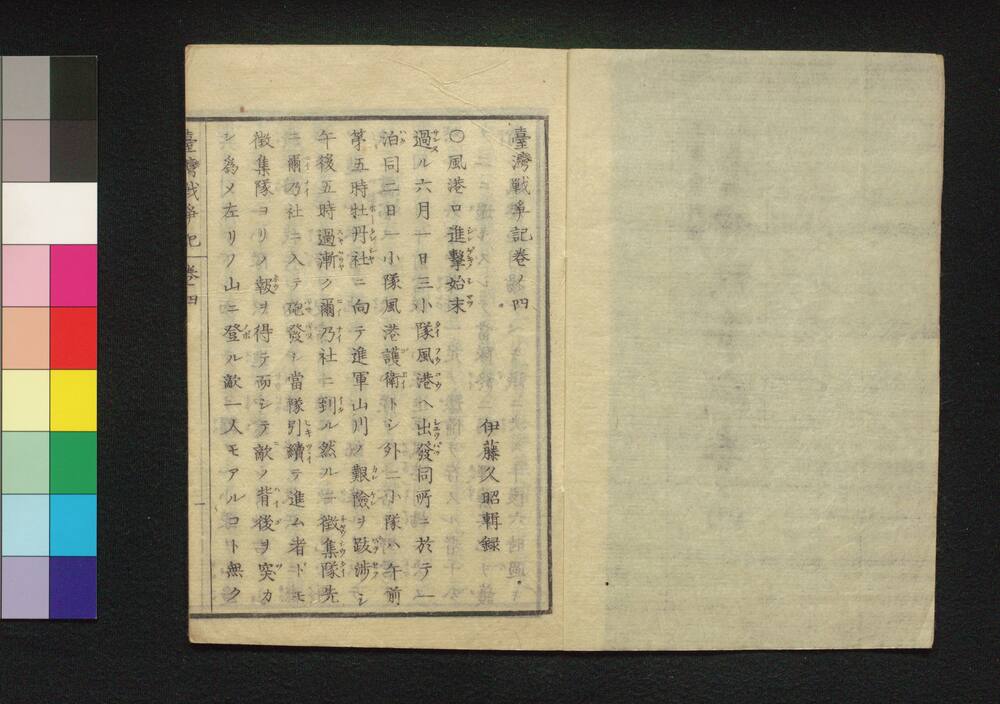 臺灣戦爭記卷ノ四
伊藤久昭輯録
〇風港口進擊始末
過ル六月一日三小隊風港ヘ出發同所ニ於テ一
泊同二日一小隊風港護衛トシ外二小隊ハ午前
第五時牡丹社ニ向テ進軍山川ノ艱險ヲ跋渉シ
午後五時過漸ク爾乃社ニ到ル然ルニ徴集隊先
ニ爾乃社ニ入テ砲發シ當隊引續テ進ム者トモ
徴集隊ヨリノ報ヲ得テ而シテ敵ノ背後ヲ突カ
ン為メ左リノ山ニ登ル敵一人モアルコト無ク
臺灣戦爭記 卷四
一